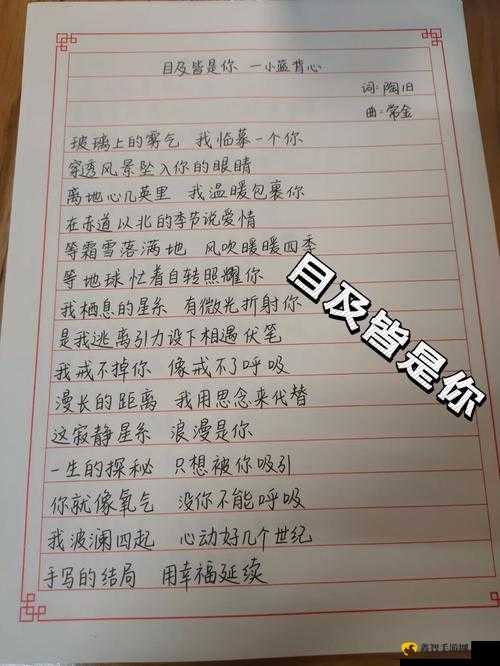 目及皆是你 一小蓝背心
词:陶旧
曲:常金
玻璃上的雾气 我临慕一个你
穿透风景坠入你的眼睛
离地心几英里 我温暖包裹你
在赤道以北的季节说爱情
等霜雪落满地 风吹暖暖四季
等地球忙着自转照耀你
我栖息的星系 有微光折射你
是我逃离引力设下相遇伏笔
我戒不掉你 像戒不了呼吸
漫长的距离 我用思念来代替
这寂静星系 浪漫是你
一生的探秘 只想被你吸引
你就像氧气 没你不能呼吸
我波澜四起 心动好几个世纪
手写的结局 用幸福延续
目及皆是你